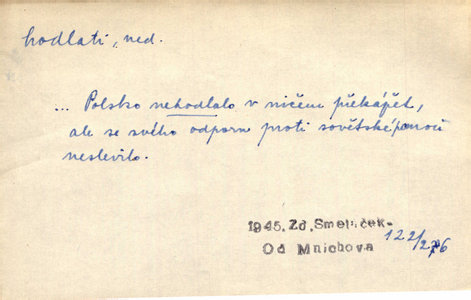 hodlati, ned.
... Polsko nehodlalo v ničem překážet,
ale se svého odporu proti sovětské pomoci
neslevilo.
1945, Zd. Smetáček-
Od Mnichova
122/276